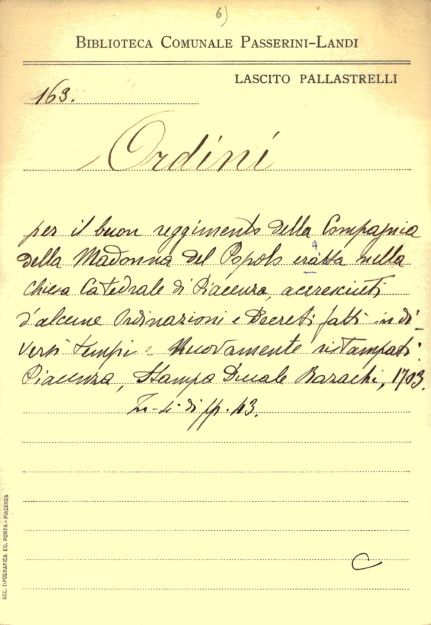 6)
BIBLIOTECA COMUNALE PASSERINI-LANDI
LASCITO PALLASTRELLI
163.
Ordini
per il buon reggimento della Compagnia
della Madonna del Popolo eratta nella
chiesa Catedrale di Piacenza, accresciuti
d'alcune Ordinazioni e Decreti fatti in di
versi tempi e Nuovamente ristampati.
Piacenza, Stampa Ducale Bazachi, 1703.
In-4 di pp. 43.
C
SOC. TIPOGRAFICA ED. PORTA-PIACENZA